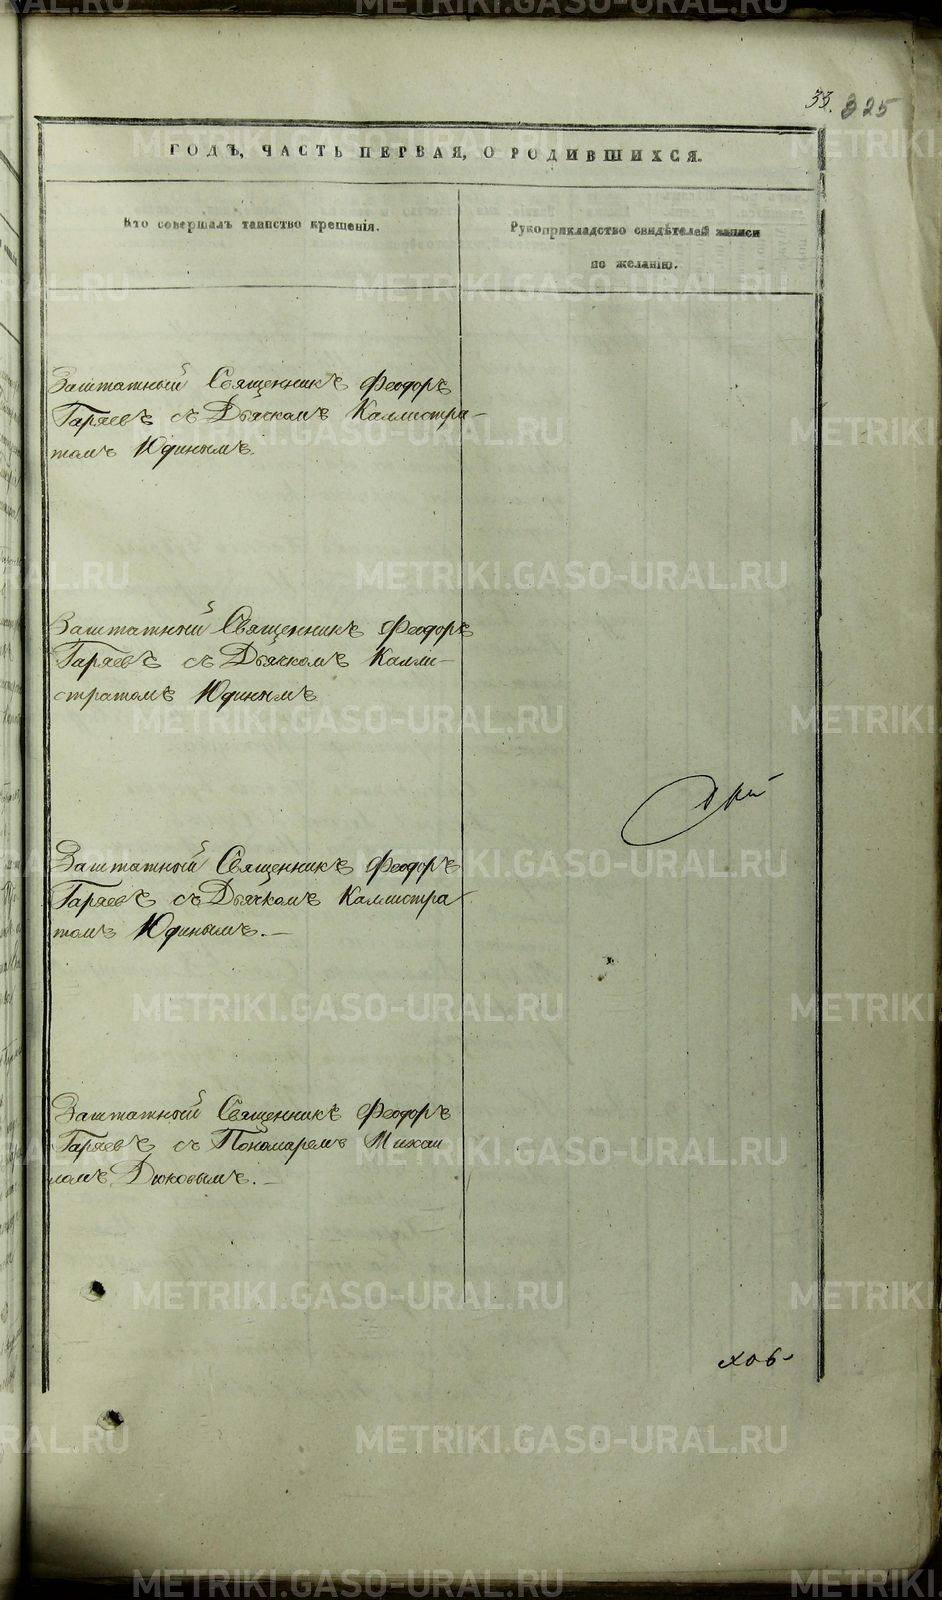 33. 325
ГОДЪ, ЧАСТЬ ПЕРВАЯ, О РОДИВШИХСЯ.
Кто совершалъ таинство крещенія.
Рукоприкладство свидѣтелей записи
по желанію.
Заштатный Священникъ Феодоръ
Гаряевъ съ Дьячкомъ Каллистра-
томъ Юдинымъ.
Заштатный Священникъ Феодоръ
Гаряевъ съ Дьячкомъ Калли-
стратомъ Юдинымъ
Заштатный Священникъ Феодоръ
Гаряевъ съ Дьячкомъ Каллистра
томъ Юдинымъ.—
Заштатный Священникъ Феодоръ
Гаряевъ съ Пономаремъ Михаи
ломъ Дюковымъ.—
ков-
METRIKI.GASO-URAL.RU